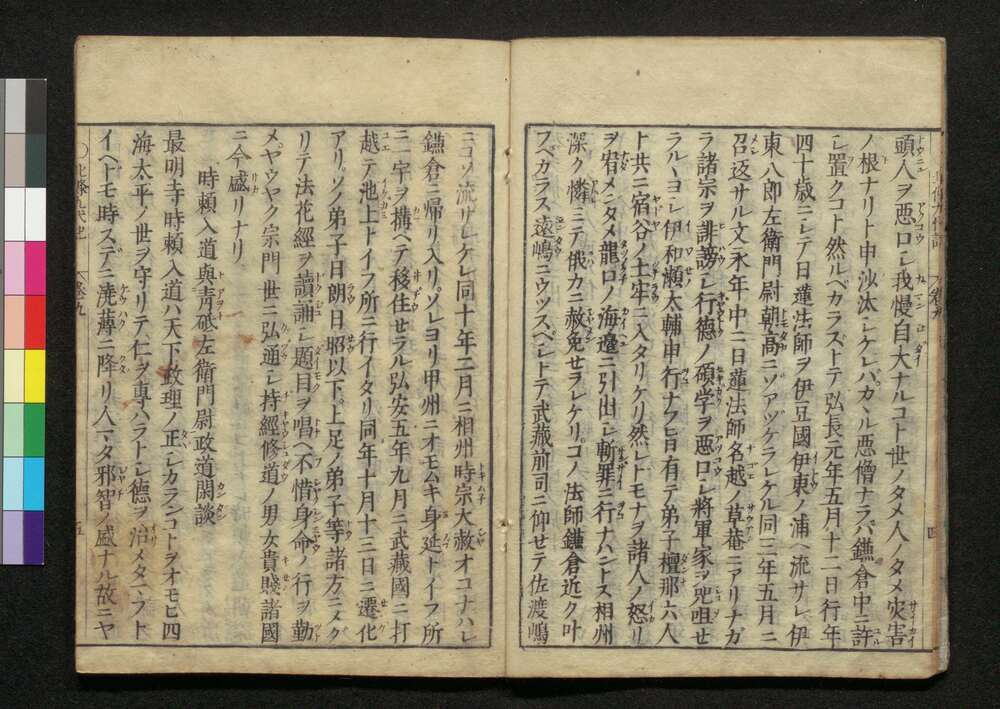 頭人ヲ悪口シ我慢自大ナルコト世ノタメ人ノタメ灾害
ノ根ナリト申沙汰シケレバカヽル悪僧ナラバ鎌倉中ニ許
シ置クコト然ルベカラズトテ弘長元年五月十二日行年
四十歳ニシテ日蓮法師ヲ伊豆國伊東ノ浦ヘ流サレ伊
東八郎左衛門尉朝高ニソアツケラレケル同三年五月ニ
召返サル文永年中ニ日蓮法師名越ノ草菴ニアリナガ
ラ諸宗ヲ誹謗シ行徳ノ碩学ヲ悪口シ将軍家ヲ呪咀セ
ラルヽヨシ伊和瀬太輔申行ナフ旨有テ弟子檀那六人
ト共ニ宿谷ノ土牢ニ入タリケリ然レトモナヲ諸人ノ怒リ
ヲ宥メンタメ龍口ノ海邊ニ引出シ斬罪ニ行ナハントス相州
深ク憐ミテ俄カニ赦免セラレケリコノ法師鎌倉近ク叶
スベカラス遠嶋ニウツスベシトテ武蔵前司ニ仰セテ佐渡嶋
四
ニコソ流サレケレ同十年二月ニ相州時宗大赦オコナハレ
鎌倉ニ帰リ入リソレヨリ甲州ニオモムキ身延トイフ所
ニ一宇ヲ構ヘテ移住セラル弘安五年九月ニ武蔵國ニ打
越テ池上トイフ所ニ行イタリ同年十月十三日ニ遷化
アリソノ弟子日朗日昭以下上足ノ弟子等諸方ニメグ
リテ法花經ヲ讀誦シ題目ヲ唱ヘ不惜身命ノ行ヲ勤
メヤウヤク宗門世ニ弘通シ持經修道ノ男女貴賤諸國
ニ今盛リナリ
時頼入道與青砥左衛門尉政道閑談
最明寺時頼入道ハ天下政理ノ正シカランコトヲオモヒ四
海太平ノ世ヲ守リテ仁ヲ専ハラトシ德ヲ治メタマフト
イヘトモ時スデニ澆薄ニ降リ人マタ邪智ノ盛ナル故ニヤ
北條九代記
巻九
五